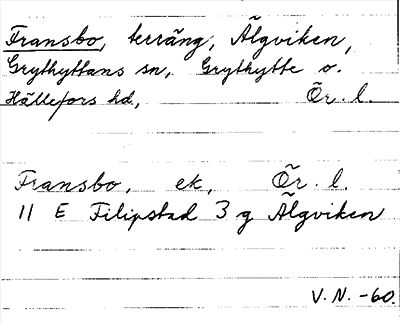 Fransbo, terräng, Älgviken,
Grythyttans sn, Grythytte o.
Hällefors hd, Ör. l.
Fransbo, ek, Ör. l.
11 E Filipstad 3 g Älgviken
V. N. -60.